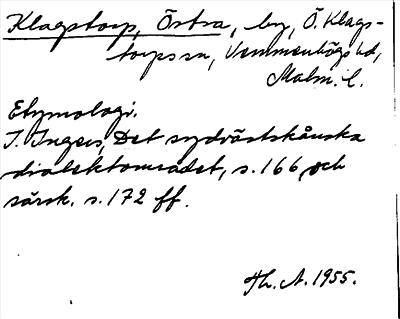 Klagstorp, Östra, by, Ö. Klags-
torps sn, Vemmenhögs hd,
Malm. l.
Etymologi.
I. Ingers, Det sydvästskånska
dialektområdet, s. 166 och
särsk. s. 172 ff.
Th. A. 1955.